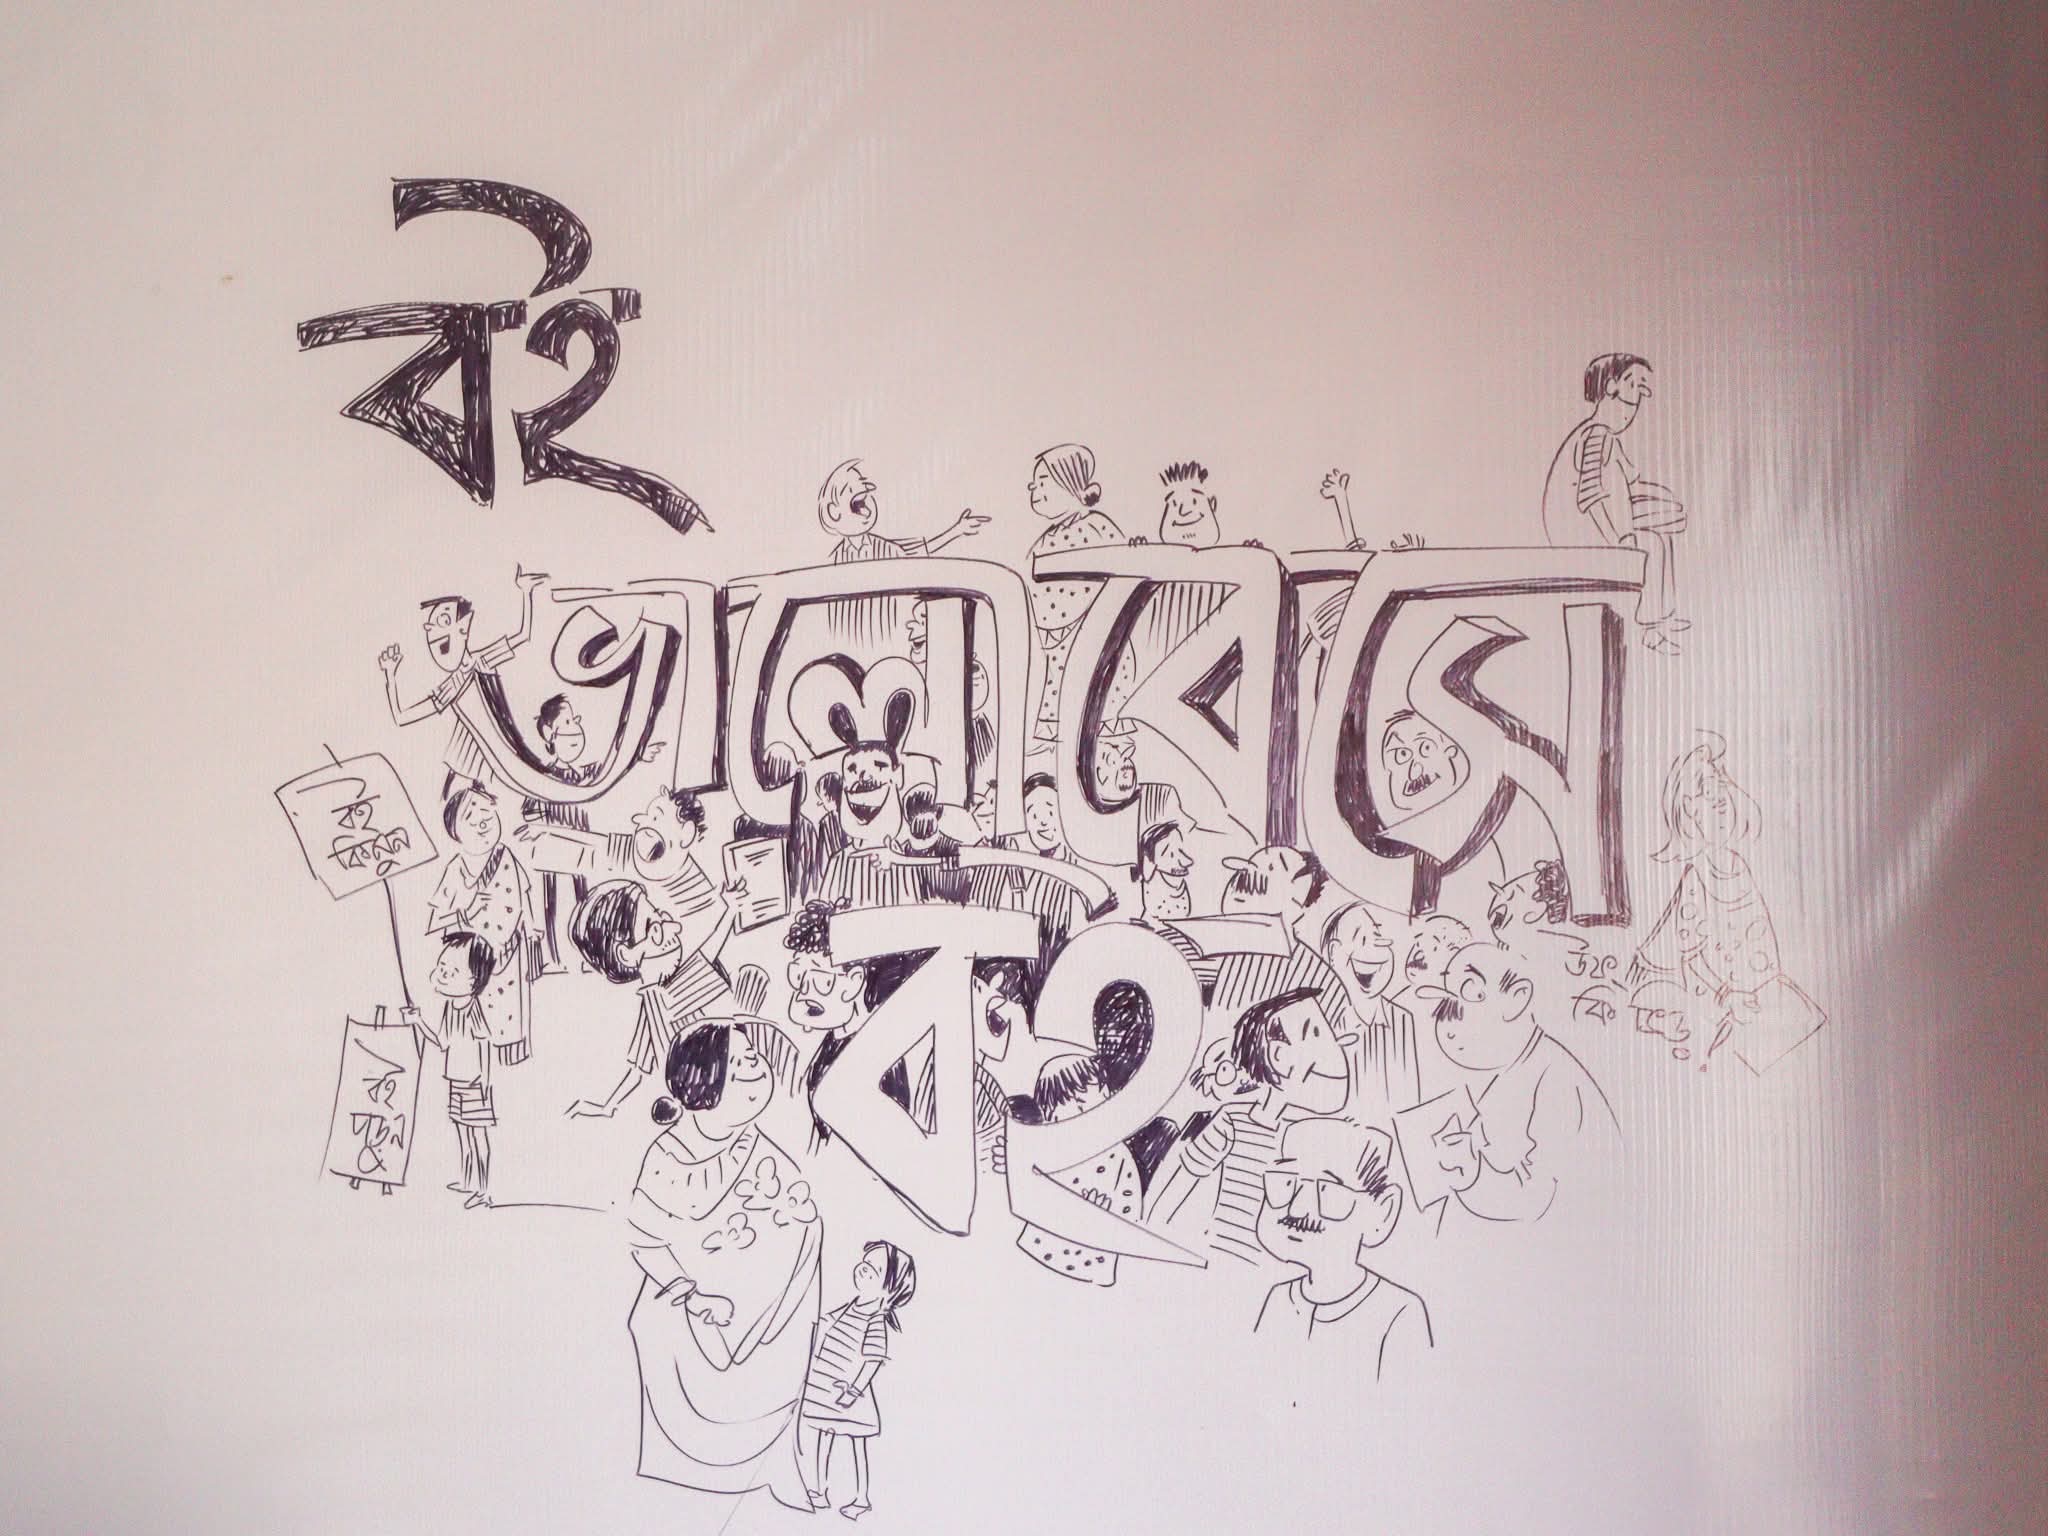 বই
ভালোবেসে
বই
বই
কিনুন
বই
পড়ুন
উফ্
কি ভিড়